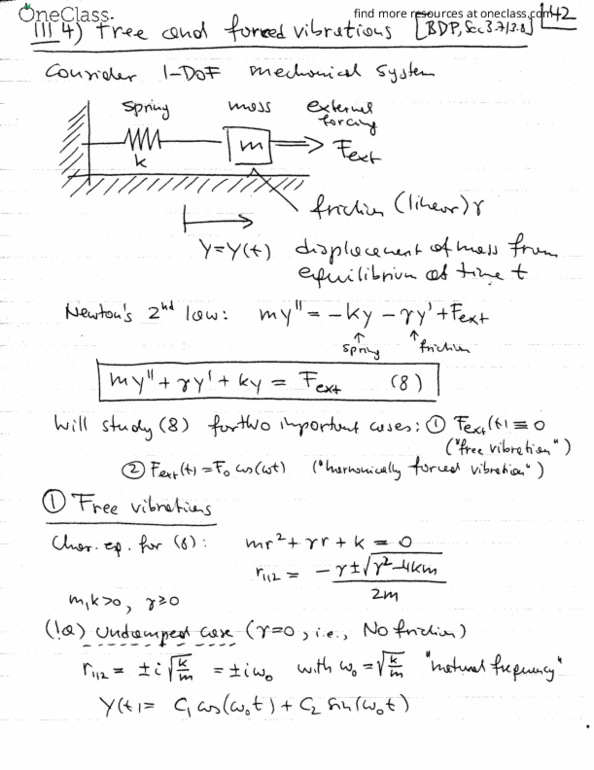 OneClass
find more resources at oneclass.com
42
III 4) Free and forced vibrations [BDP, Sec 3.7/3.8]
Consider 1-DoF mechanical system
spring mass external forcing
k m F_ext
friction (linear) γ
y=y(t) displacement of mass from
equilibrium at time t
Newton's 2nd law: my" = -ky - γy' + F_ext
↑ spring ↑ friction
my" + γy' + ky = F_ext (8)
Will study (8) for two important cases: ① F_ext(t) ≡ 0
("free vibration")
② F_ext(t) = F₀ cos(ωt) ("harmonically forced vibration")
① Free vibrations
Char. eq. for (8): mr² + γr + k = 0
r₁,₂ = -γ ± √(γ² - 4km) / 2m
m,k>0, γ≥0
(1a) Undamped case (γ=0, i.e., No friction)
r₁,₂ = ± i √(k/m) = ± iω₀ with ω₀ = √(k/m) "natural frequency"
y(t) = C₁ cos(ω₀t) + C₂ sin(ω₀t)